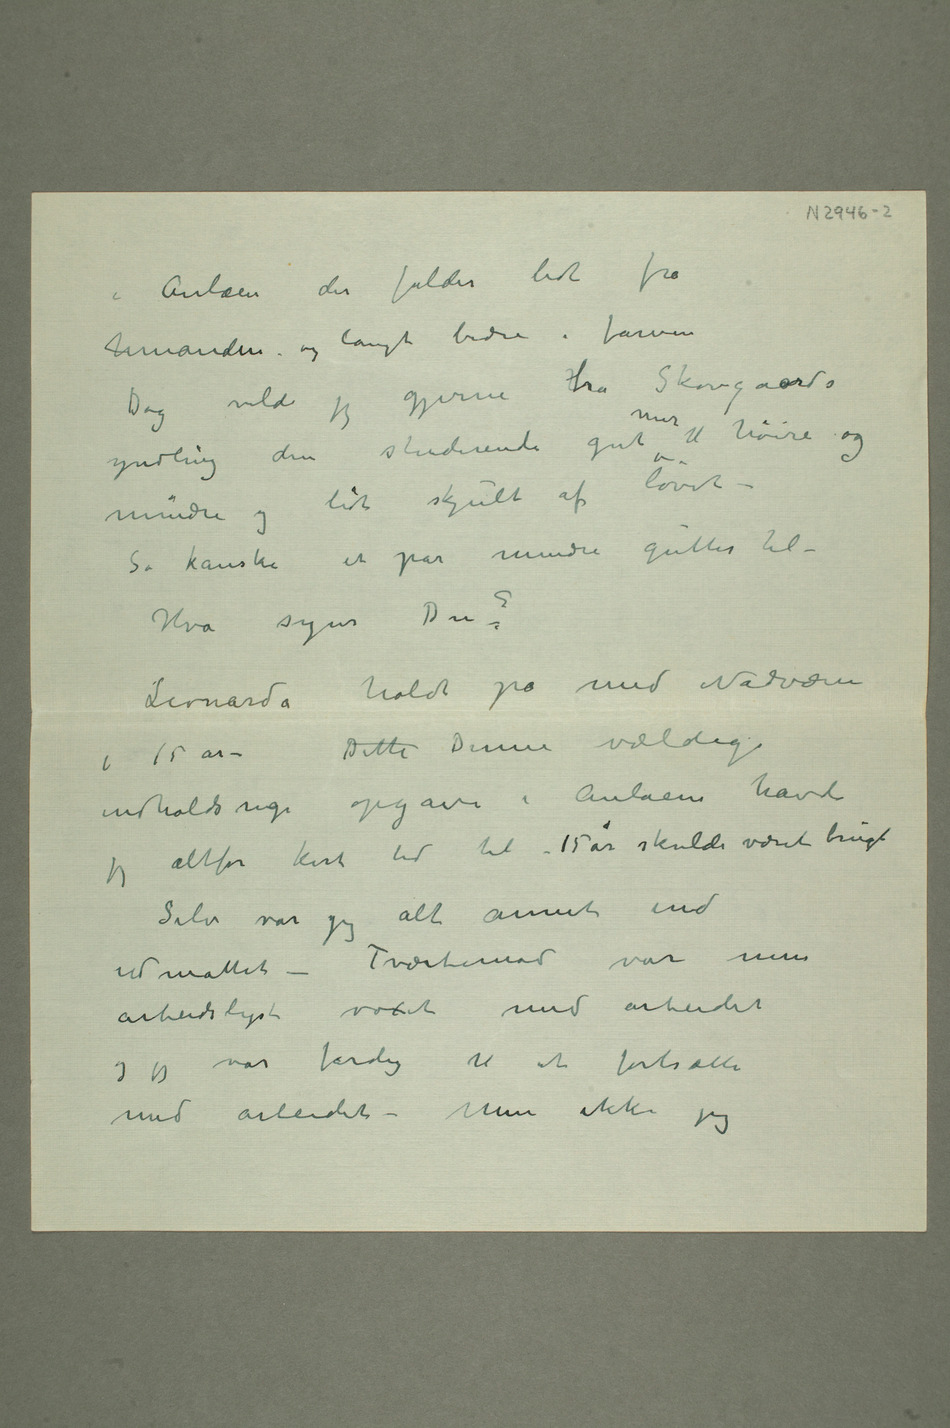 N 2946-2
i Aulaen der falder lidt fra
hinanden. og langt bedre i farven
Dog vilde jeg gjerne ha Skovgaards
yndling den studerende gut mer til høire og
mindre og lidt skjült af løvet –
Så kanske et par mindre gütter til –
Hva synes Du?
Leonarda holdt på med Nadværen
i 15 år – Dette Denne vældige
indholdsrige opgave i Aulaen havde
jeg altfor kort tid til – 15 år skulde været brügt
Selv var jeg alt annet end
udmattet – Tværtimod var min
arbeidslyst voxet med arbeidet
og jeg var færdig til at fortsætte
med arbeidet – Men ikke jeg